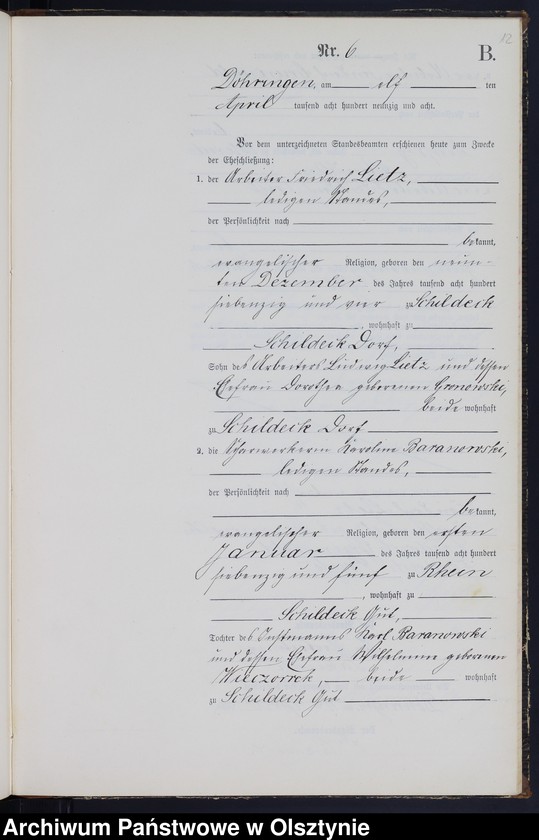 12
Nr. 6 B.
Döhringen, am elf ten
April tausend acht hundert neunzig und acht.
Vor dem unterzeichneten Standesbeamten erschienen heute zum Zwecke
der Eheschließung:
1. der Arbeiter Friedrich Lietz,
ledigen Standes,
der Persönlichkeit nach
bekannt,
evangelischer Religion, geboren den neun-
ten Dezember des Jahres tausend acht hundert
siebenzig und vier zu Schildeck
, wohnhaft zu
Schildeck Dorf,
Sohn des Arbeiters Ludwig Lietz und dessen
Ehefrau Dorothea geborenen Gronowski,
beide wohnhaft
zu Schildeck Dorf
2. die Scharwerkerin Karoline Baranowski,
ledigen Standes,
der Persönlichkeit nach
bekannt,
evangelischer Religion, geboren den ersten
Januar des Jahres tausend acht hundert
siebenzig und fünf zu Rhein
, wohnhaft zu
Schildeck Gut,
Tochter des Instmanns Karl Baranowski
und dessen Ehefrau Wilhelmine geborenen
Wieczorrek, beide wohnhaft
zu Schildeck Gut
Archiwum Państwowe w Olsztynie